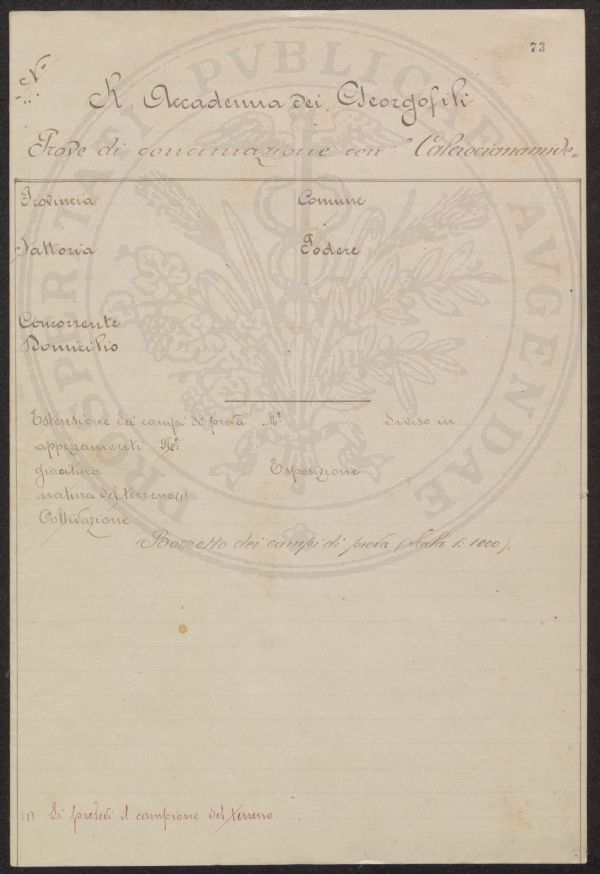 73
N°
R. Accademia dei Georgofili
Prove di concimazione con "Calciocianamide"
Provincia Comune
Fattoria Podere
Concorrente
Domicilio
Estensione dei campi di prova M² diviso in
appezzamenti N°:
giacitura Esposizione
natura del terreno (1)
Coltivazione
Bozzetto dei campi di prova (Scala 1:1000).
(1) Si prelevi il campione del terreno
PROSPERITATI PVBLICAE AVGENDAE